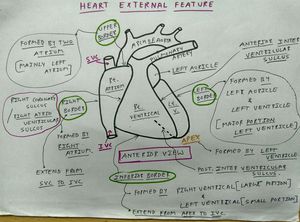 HEART EXTERNAL FEATURE
UPPER
BORDER
FORMED BY TWO
ATRIUM
[MAINLY LEFT
ATRIUM]
SVC
ARCH OF AORTA
PULMONARY
ARTERY
LEFT AURICLE
ANTERIOR INTER
VENTRICULAR
SULCUS
Rt.
ATRIUM
RIGHT CORONARY
SULCUS/
RIGHT ATRIO
VENTRICULAR
SULCUS
RIGHT
BORDER
Rt.
VENTRICAL
Lt.
V.
LEFT
BORDER
FORMED BY
LEFT AURICLE
&
LEFT VENTRICLE
[MAJOR PORTION
LEFT VENTRICLE]
FORMED BY
RIGHT
ATRIUM
IVC
APEX
FORMED BY LEFT
VENTRICLE
ANTERIOR VIEW
POST. INTER VENTRICULAR
SULCUS
EXTEND FROM
SVC TO IVC
INFERIOR BORDER
FORMED BY RIGHT VENTRICAL [LARGE PORTION]
& LEFT VENTRICAL [SMALL PORTION]
EXTEND FROM APEX TO IVC